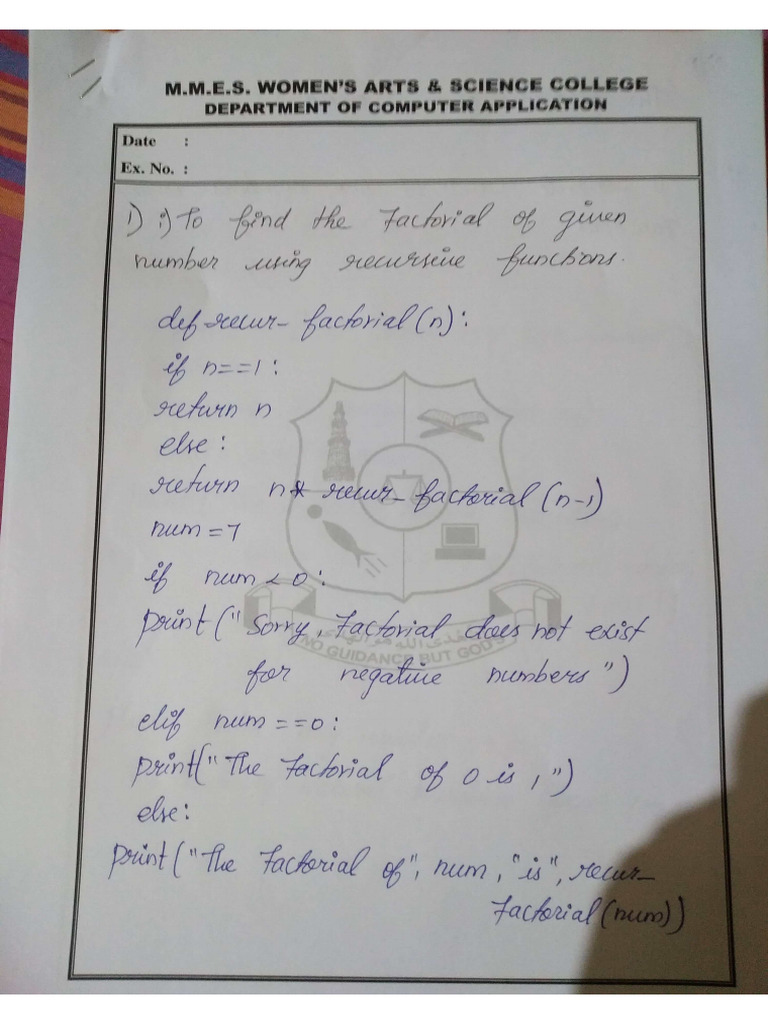 M.M.E.S. WOMEN'S ARTS & SCIENCE COLLEGE
DEPARTMENT OF COMPUTER APPLICATION
Date :
Ex. No. :
1) i) To find the Factorial of given
number using recursive functions.
def recur_factorial(n):
if n==1:
return n
else:
return n* recur_factorial(n-1)
num=7
if num<0:
print("Sorry, Factorial does not exist
for negative numbers")
NO GUIDANCE BUT GOD'S
elif num==0:
print("The Factorial of 0 is 1")
else:
print("The Factorial of", num, "is", recur_
factorial(num))